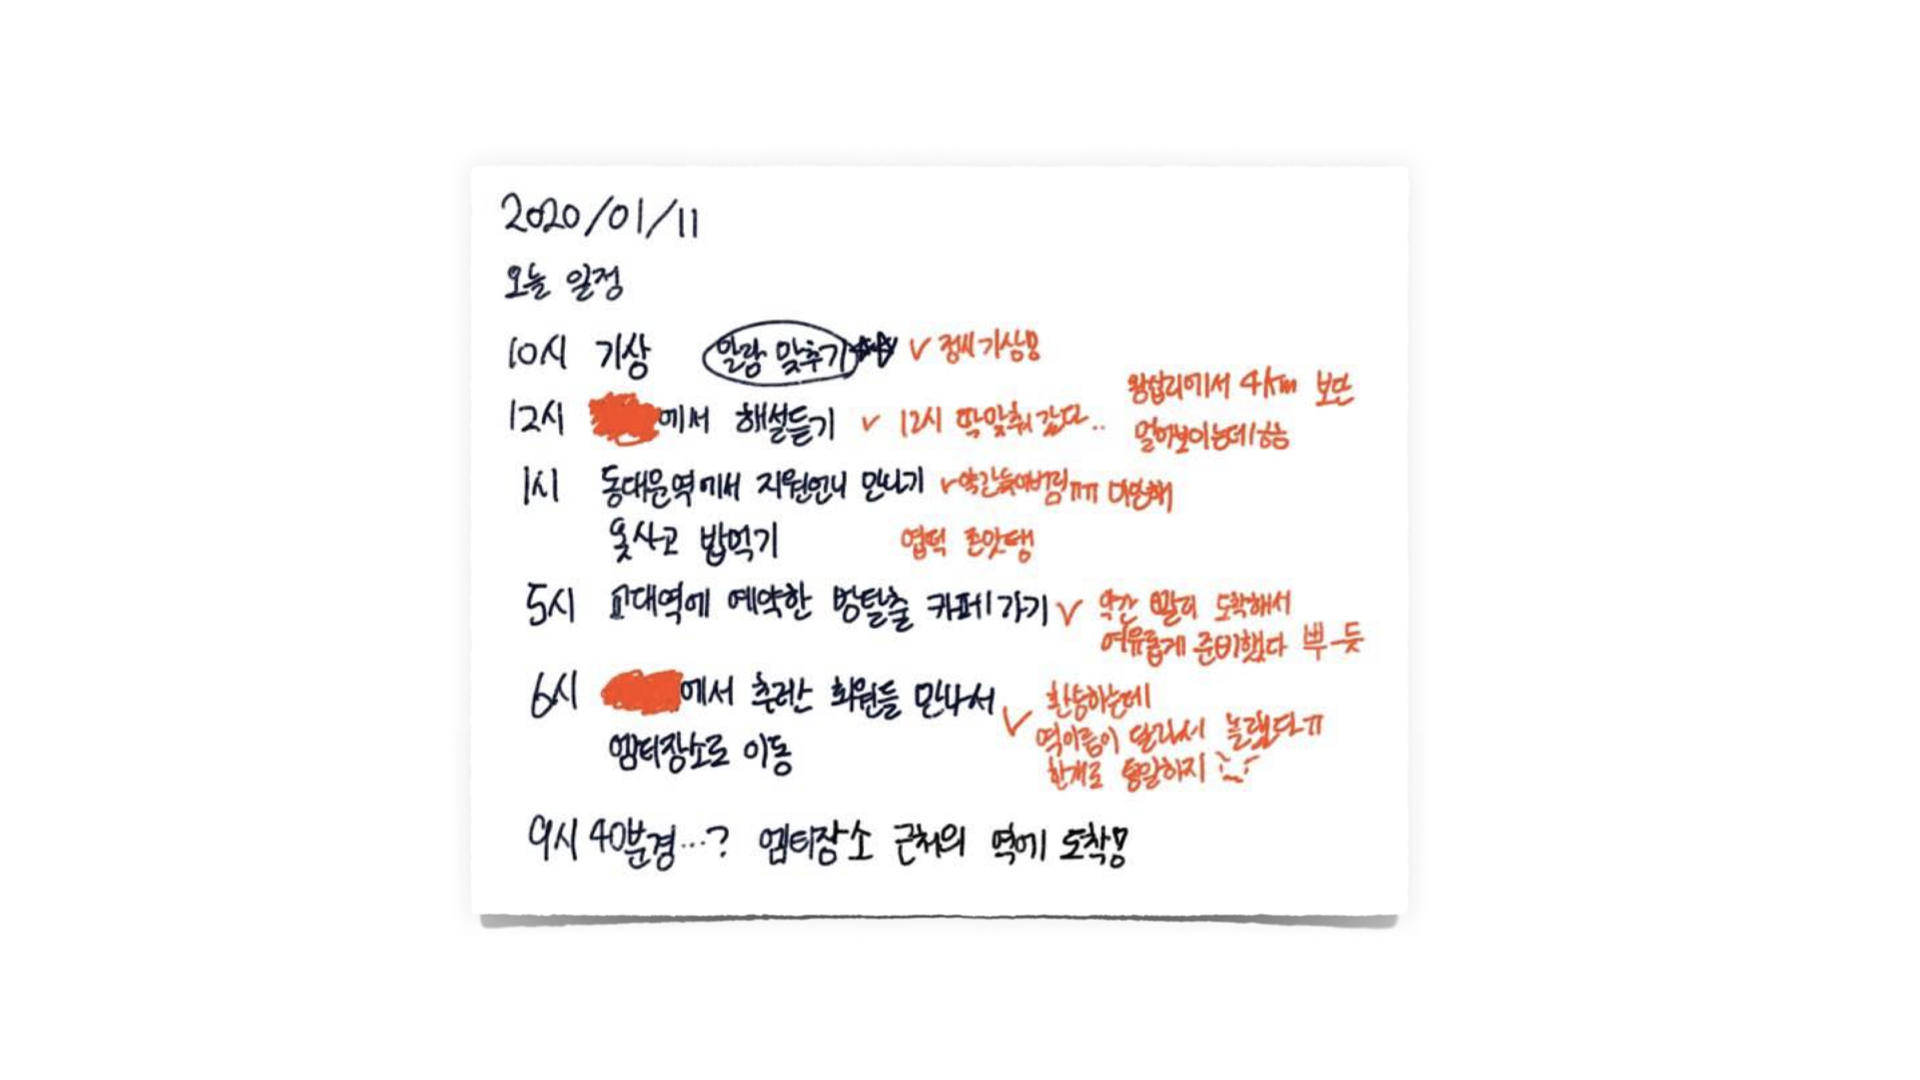 2020/01/11
오늘 일정
10시 기상 알람 맞추기 ✓ 정시기상!
12시 에서 해설듣기 ✓ 12시 딱맞춰 갔다.. 왕십리에서 4km 보단
멀어보이는데 ㅎㅎ
1시 동대문역에서 지원언니 만나기 ✓ 약간늦어버림ㅠㅠ 미안해
옷사고 밥먹기 엽떡 존맛탱
5시 교대역에 예약한 방탈출 카페 가기 ✓ 약간 빨리 도착해서
여유롭게 준비했다 뿌-듯
6시 에서 추러산 회원들 만나서 ✓ 환승하는데
엠티장소로 이동 역이름이 달라서 놀랬다ㅠ
한개로 통일하지
9시 40분경...? 엠티장소 근처의 역에 도착!